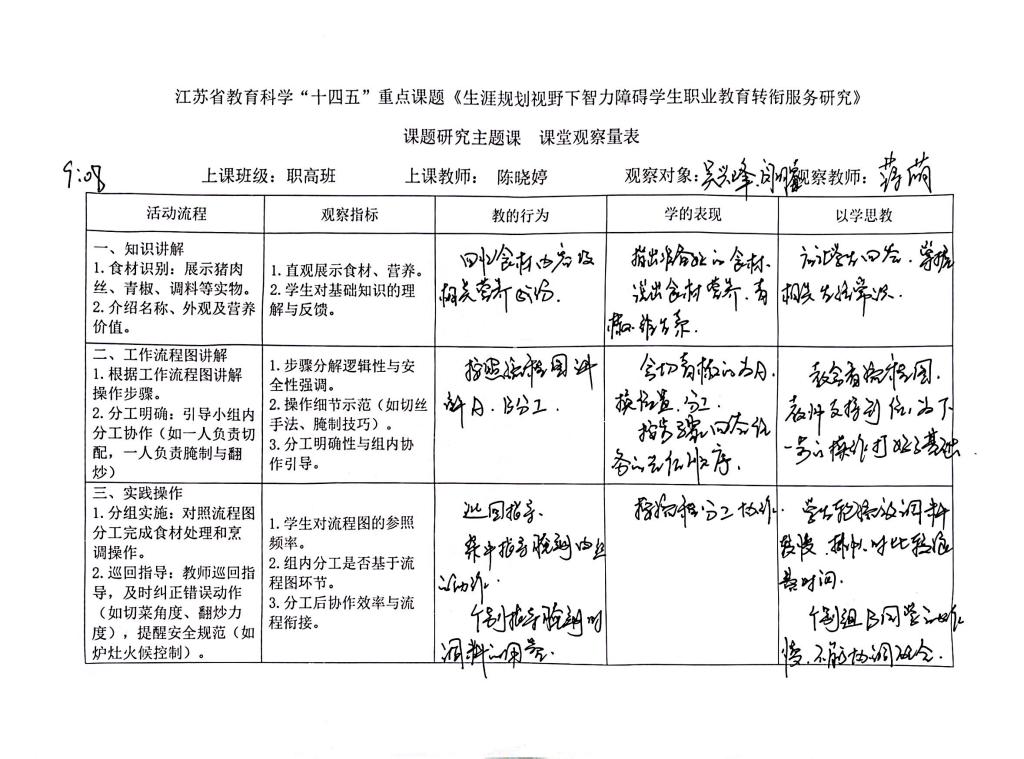 江苏省教育科学“十四五”重点课题《生涯规划视野下智力障碍学生职业教育转衔服务研究》
课题研究主题课 课堂观察量表
9:08 上课班级：职高班 上课教师： 陈晓婷 观察对象： 观察教师：
活动流程 观察指标 教的行为 学的表现 以学思教
一、知识讲解
1.食材识别：展示猪肉
丝、青椒、调料等实物。
2.介绍名称、外观及营养
价值。
1.直观展示食材、营养。
2.学生对基础知识的理
解与反馈。
回忆食材内容及
相关营养成份。
指出准备好的食材、
说出食材营养、青
讨论学生回答，掌握
相关生活常识。
二、工作流程图讲解
1.根据工作流程图讲解
操作步骤。
2.分工明确：引导小组内
分工协作（如一人负责切
配，一人负责腌制与翻
炒）
1.步骤分解逻辑性与安
全性强调。
2.操作细节示范（如切丝
手法、腌制技巧）。
3.分工明确性与组内协
作引导。
按照流程图讲
A、B分工。
会切青椒的为A，
换位置、分工。
按步骤回答任
务的先后顺序。
教会看流程图，
教师支持到位，为下
一步的操作打好了基础
三、实践操作
1.分组实施：对照流程图
分工完成食材处理和烹
调操作。
2.巡回指导：教师巡回指
导，及时纠正错误动作
（如切菜角度、翻炒力
度），提醒安全规范（如
炉灶火候控制）。
1.学生对流程图的参照
频率。
2.组内分工是否基于流
程图环节。
3.分工后协作效率与流
程衔接。
巡回指导、
集中指导腌制肉丝
的动作。
个别指导腌制时
调料的用量。
按流程分工协作.
学生轮流放调料
较慢、排队、时比较浪
费时间.
个别组B同学的动作
慢、不能协调配合.